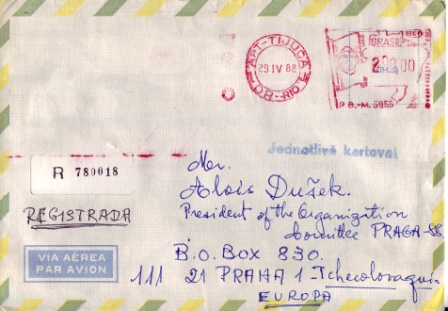 APT-TIJUCA
29 IV 88
DR-RIO
BRASIL
P.B.-M. 5855
Jednotlivě kartoval
R 780018
REGISTRADA
VIA AÉREA
PAR AVION
Mr.
Alois Dušek.
President of the Organization
Committee PRAGA-88
B.O. BOX 830.
111 21 PRAHA 1 Tchecolovaquia
EUROPA